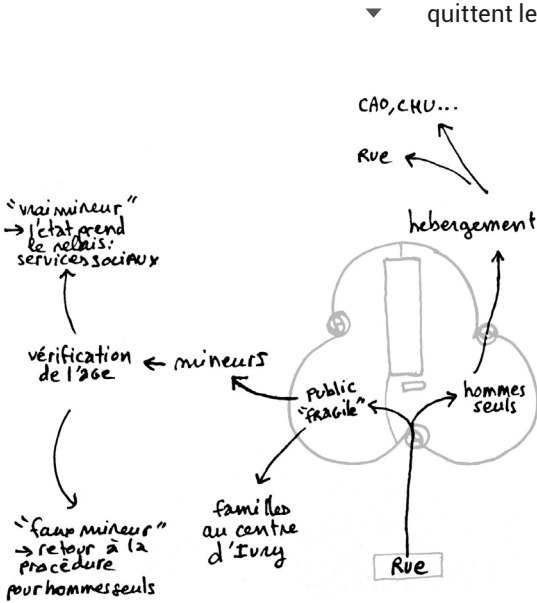 quittent le
CAO, CHU...
Rue
hebergement
"vrai mineur"
→ l'état prend
le relais:
services sociaux
vérification
de l'age
← mineurs
public
"fragile"
hommes
seuls
"faux mineur"
→ retour à la
procédure
pour hommes seuls
familles
au centre
d'Ivry
Rue